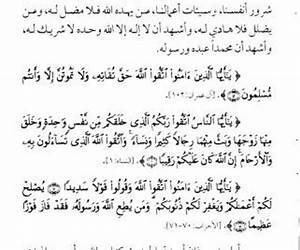 شرور أنفسنا، وسيئات أعمالنا، من يهده الله فلا مضل له، ومن
يضلل فلا هادي له، وأشهد أن لا إله إلا الله وحده لا شريك له،
وأشهد أن محمداً عبده ورسوله.
﴿ يَٰٓأَيُّهَا ٱلَّذِينَ ءَامَنُوا۟ ٱتَّقُوا۟ ٱللَّهَ حَقَّ تُقَاتِهِۦ وَلَا تَمُوتُنَّ إِلَّا وَأَنتُم
مُّسْلِمُونَ ﴾ [آل عمران: ١٠٢].
﴿ يَٰٓأَيُّهَا ٱلنَّاسُ ٱتَّقُوا۟ رَبَّكُمُ ٱلَّذِى خَلَقَكُم مِّن نَّفْسٍ وَٰحِدَةٍ وَخَلَقَ
مِنْهَا زَوْجَهَا وَبَثَّ مِنْهُمَا رِجَالًا كَثِيرًا وَنِسَآءً ۚ وَٱتَّقُوا۟ ٱللَّهَ ٱلَّذِى تَسَآءَلُونَ بِهِۦ
وَٱلْأَرْحَامَ ۚ إِنَّ ٱللَّهَ كَانَ عَلَيْكُمْ رَقِيبًا ﴾ [النساء: ١].
﴿ يَٰٓأَيُّهَا ٱلَّذِينَ ءَامَنُوا۟ ٱتَّقُوا۟ ٱللَّهَ وَقُولُوا۟ قَوْلًا سَدِيدًا يُصْلِحْ
لَكُمْ أَعْمَٰلَكُمْ وَيَغْفِرْ لَكُمْ ذُنُوبَكُمْ ۗ وَمَن يُطِعِ ٱللَّهَ وَرَسُولَهُۥ فَقَدْ فَازَ فَوْزًا
عَظِيمًا ﴾ [الأحزاب: ٧٠-٧١].